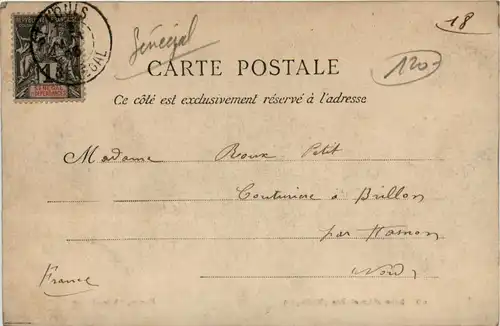 ST LOUIS
SÉNÉGAL
RÉPUBLIQUE FRANÇAISE
1
SÉNÉGAL
ET DÉPENDANCES
Sénégal
18
120-
CARTE POSTALE
Ce côté est exclusivement réservé à l'adresse
Madame Roux Petit
Couturière à Brillon
par Hasnon
Nord
France